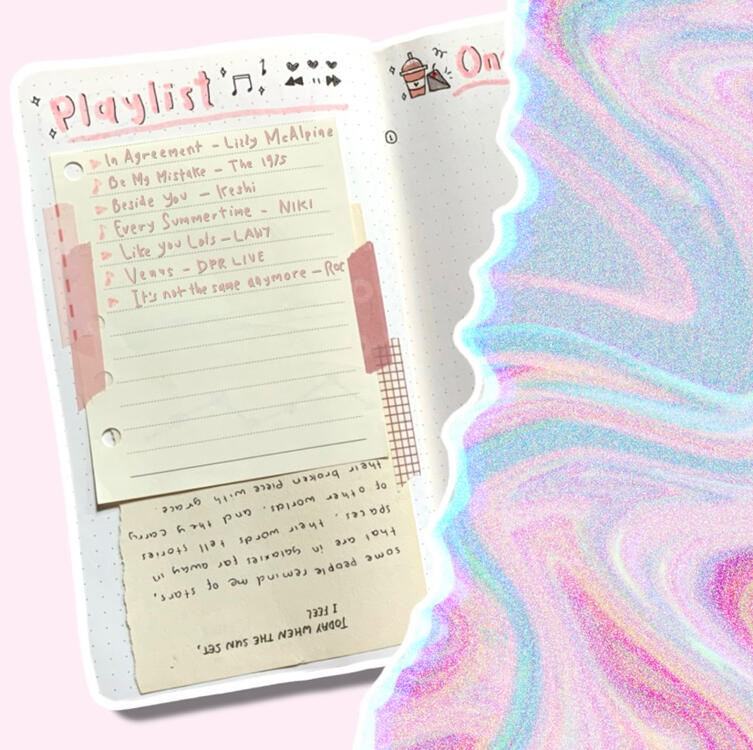 Playlist
In Agreement - Lizzy McAlpine
Be My Mistake - The 1975
Beside You - Keshi
Every Summertime - NIKI
Like you Lots - LANY
Venus - DPR LIVE
It's not the same anymore - Roc
On
TODAY WHEN THE SUN SET,
I FEEL
some people remind me of stars,
that are in galaxies far away in
spaces. their words tell stories
of other worlds. and they carry
their broken piece with grace.